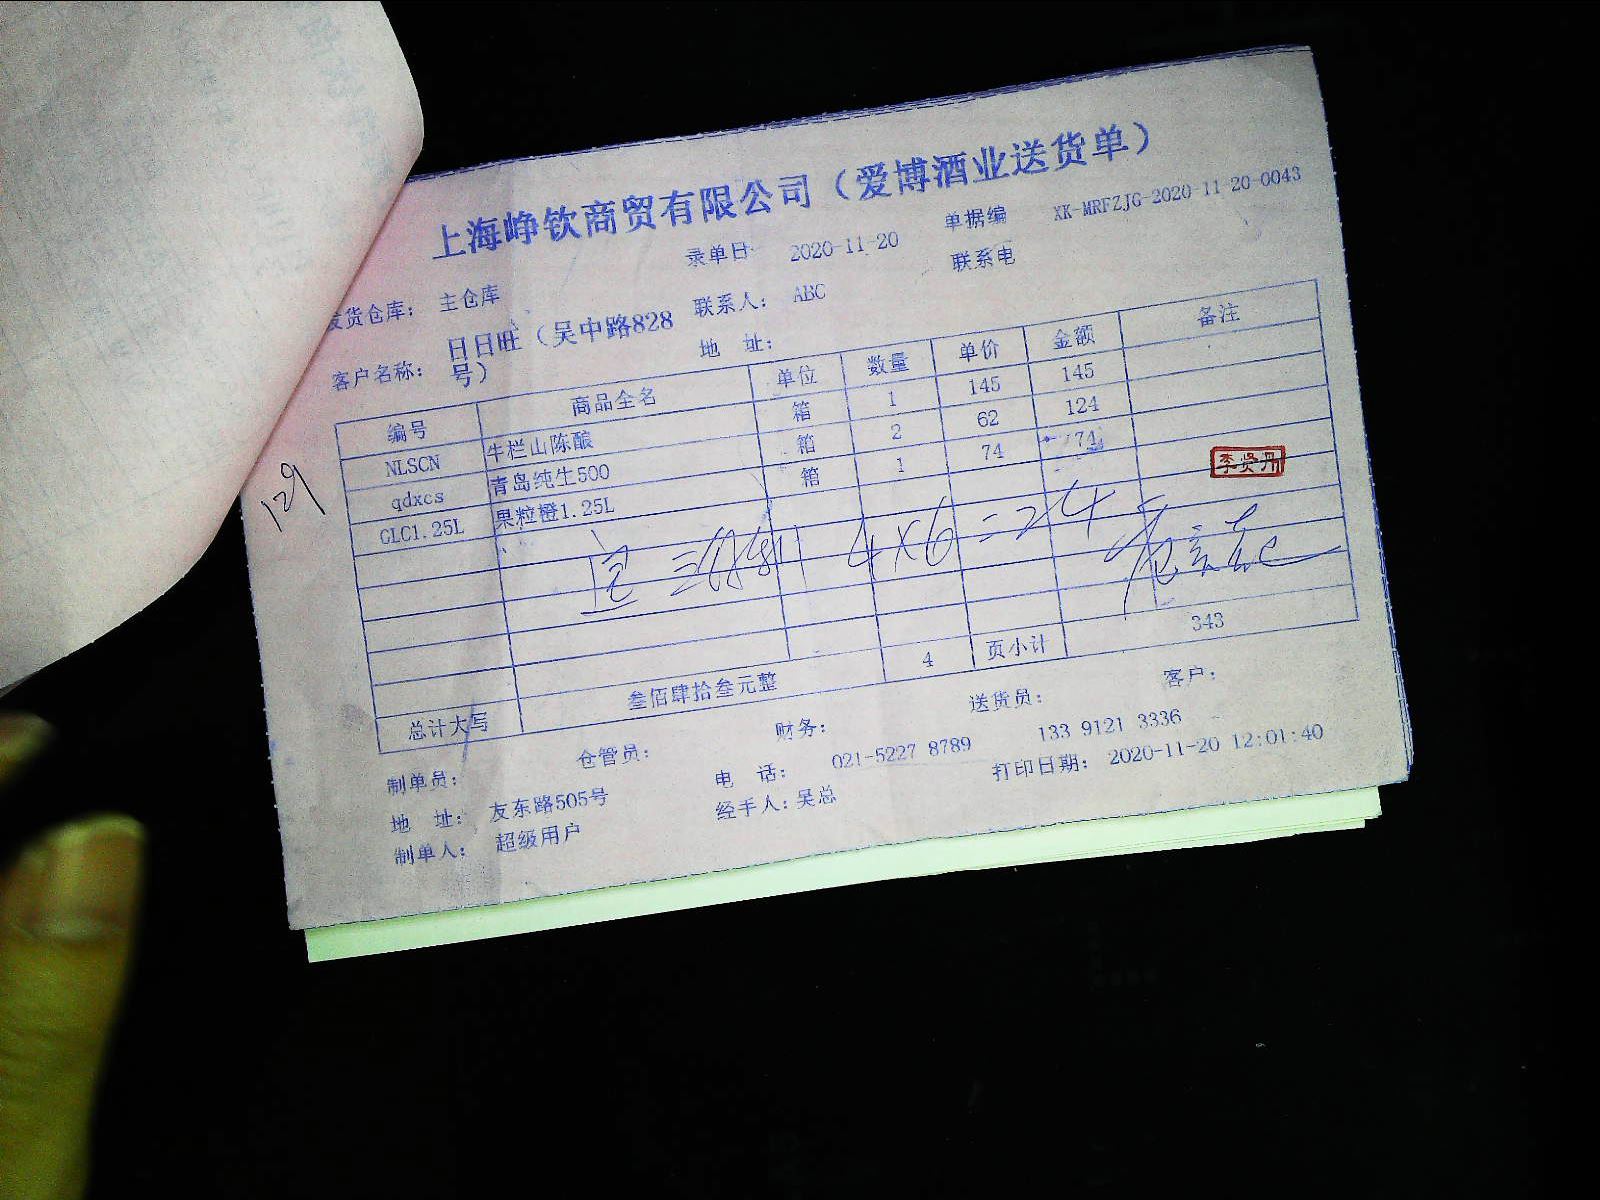 上海峥钦商贸有限公司（爱博酒业送货单）
录单日 2020-11-20 单据编 XK-MRFZJG-2020-11-20-0043
发货仓库： 主仓库 联系人： ABC 联系电
客户名称： 日日旺（吴中路828号） 地 址：
编号 商品全名 单位 数量 单价 金额 备注
NLSCN 牛栏山陈酿 箱 1 145 145
qdxcs 青岛纯生500 箱 2 62 124
GLC1.25L 果粒橙1.25L 箱 1 74 74
李贤丹
129
4×6=24
4 页小计 343
总计大写 叁佰肆拾叁元整
制单员： 仓管员： 财务： 送货员： 客户：
地 址： 友东路505号 电 话： 021-5227 8789 133 9121 3336
制单人： 超级用户 经手人：吴总 打印日期： 2020-11-20 12:01:40